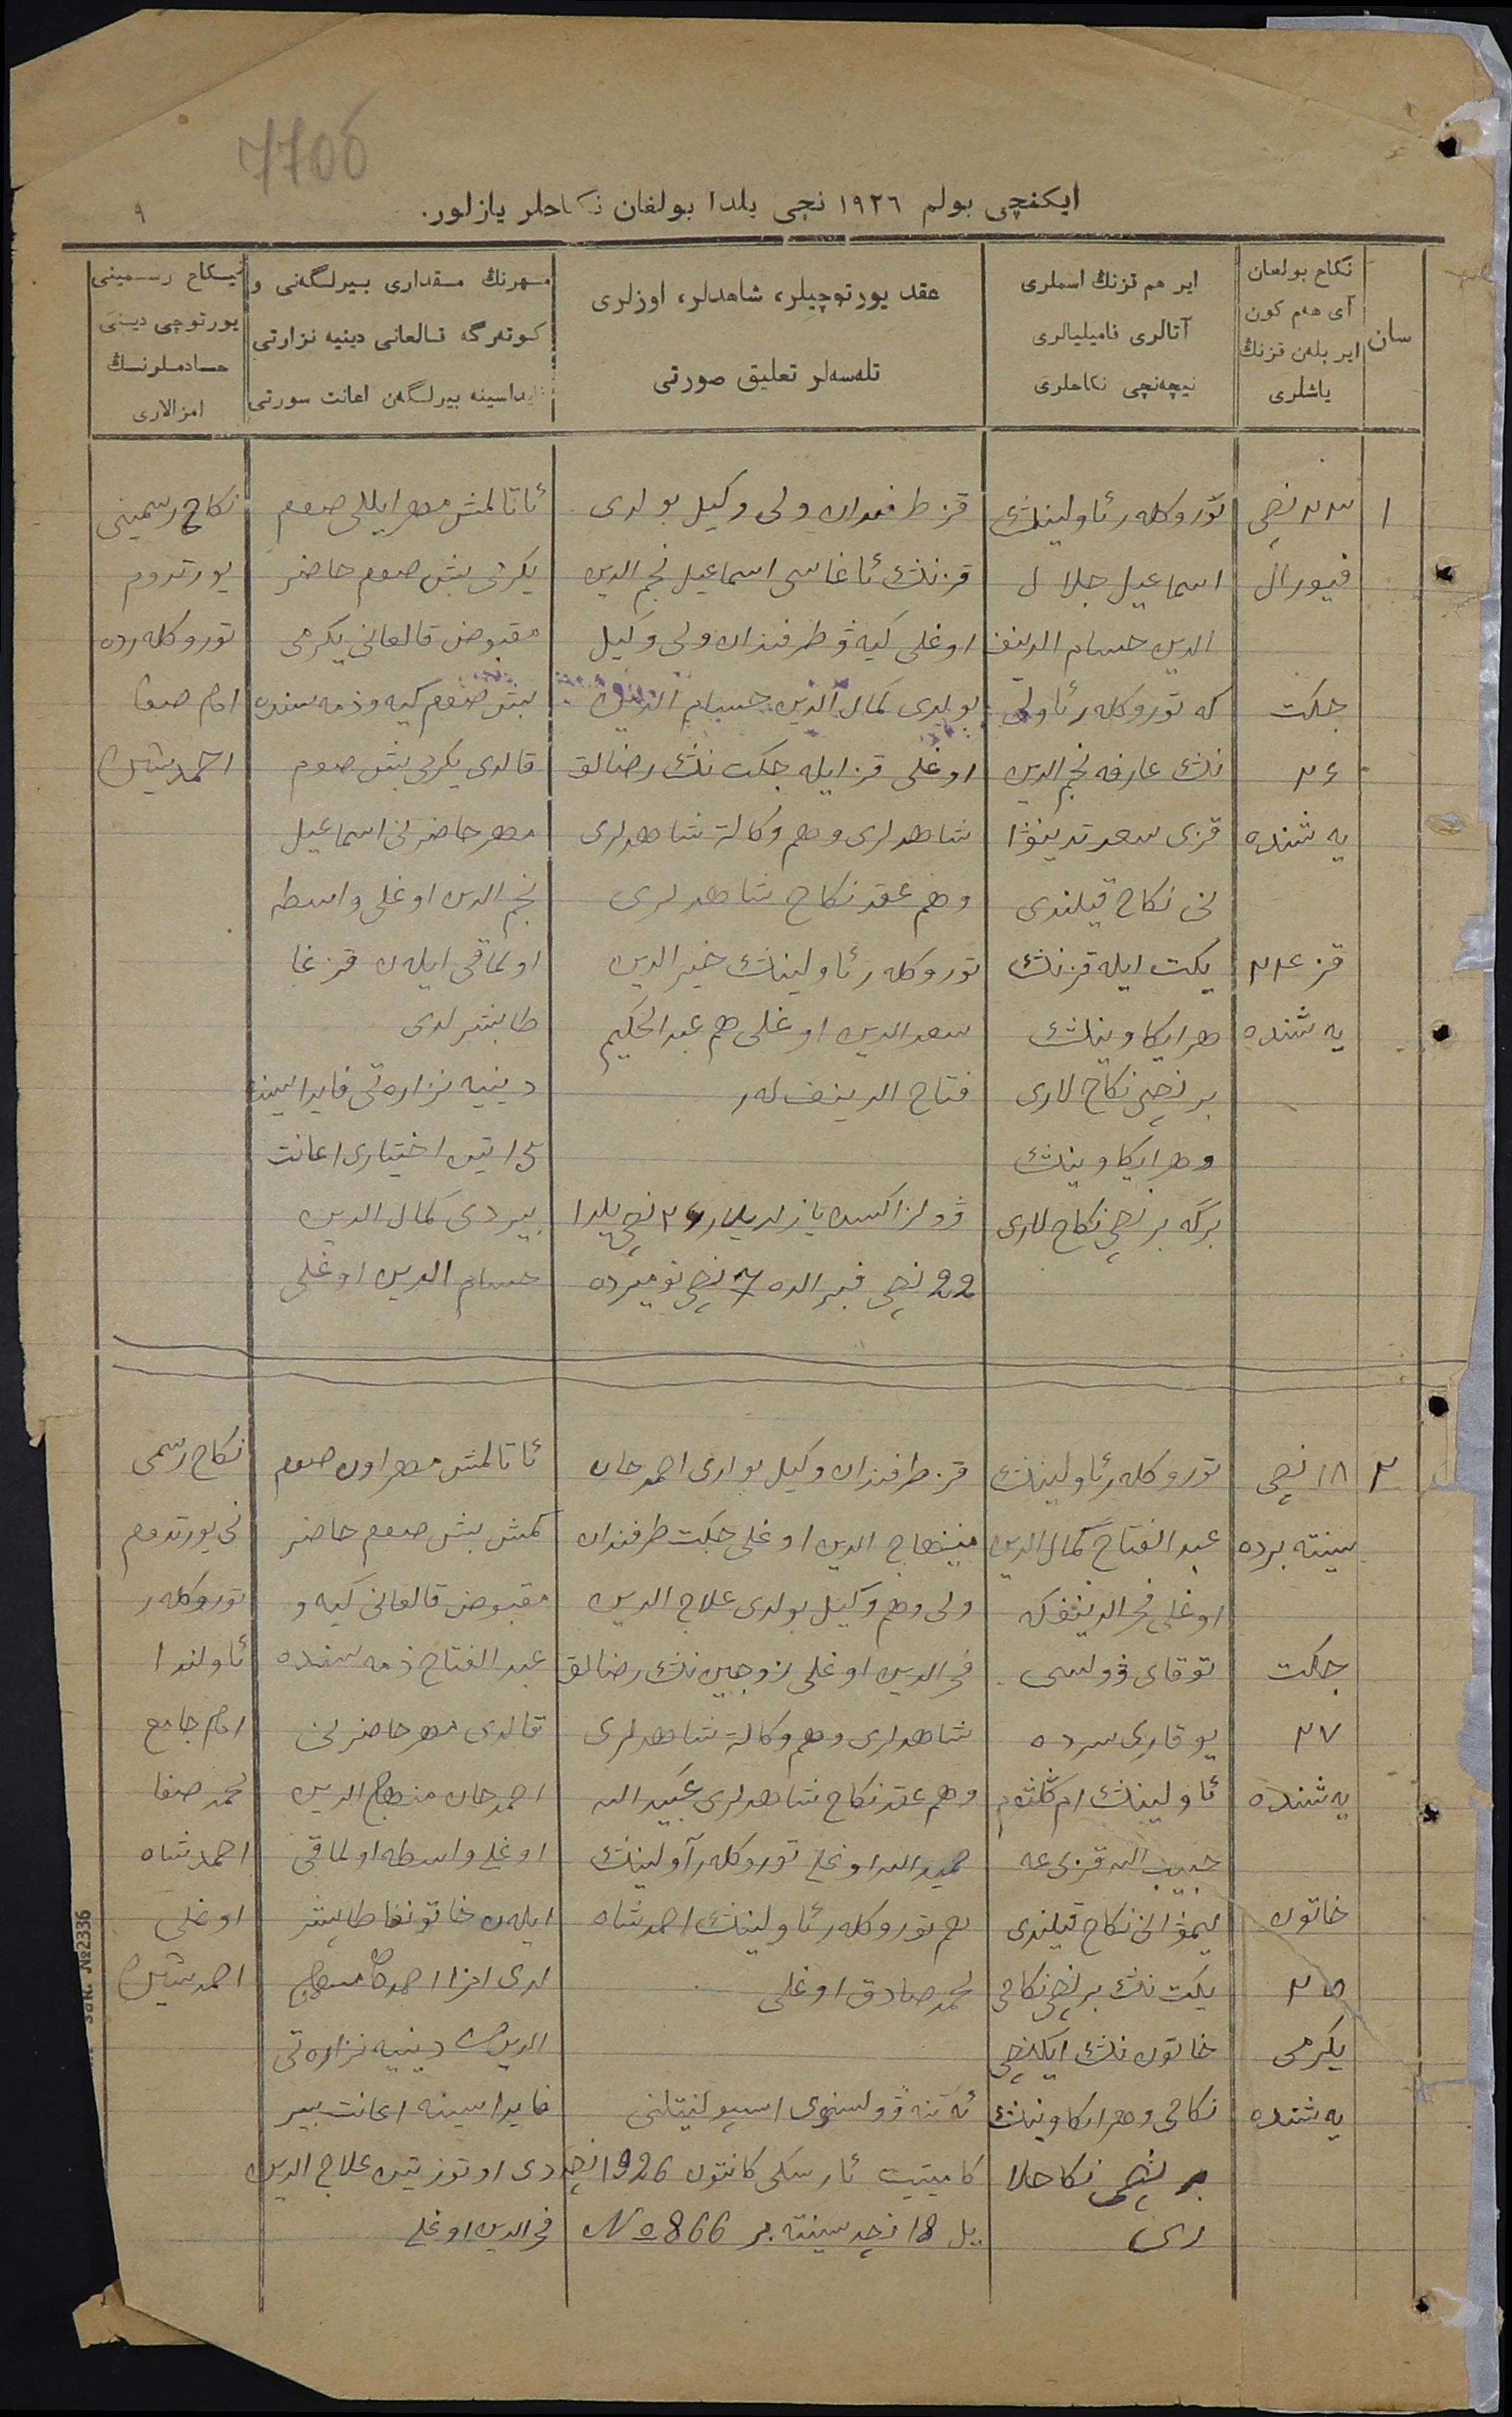 7706
ایكنچی بولم ۱۹۲٦ نچی یلدا بولغان نكاحلر یازلور.
۹
سان
نكاح بولغان
آی هەم كون
ایر بلەن قزنڭ
یاشلری
ایر هم قزنڭ اسملری
آتالری فامیلیالری
نیچەنچی نكاحلری
عقد یورتوچیلر، شاهدلر، اوزلری
تلەسەلر تعلیق صورتی
مهرنڭ مقداری بیرلگەنی و
كوتەرگە قالغانی دینیە نزارتی
فایداسینە بیرلگەن اعانت سورتی
نیكاح رسمینی
یورتوچی دینی
خادملرنڭ
امزالاری
۱
۲۲ نچی
فیورال
جكت
۲۶
یەشندە
قز ۲۲
یەشندە
توروكلەر ئاولینڭ
اسماعیل جلال
الدین حسام الدینف
كە توروكلەر ئاولی
نڭ عارفە نجم الدین
قزی سعدتدینوا
نی نكاح قیلندی
یكت ایلە قزنڭ
هرایكاوینڭ
برنچی نكاح لاری
وهرایكاوینڭ
برگە برنچی نكاح لاری
قز طرفندان ولی وكیل بولدی
قزنڭ ئاغاسی اسماعیل نجم الدین
اوغلی كیەو طرفندان ولی وكیل
بولدی كمال الدین حسام الدین
اوغلی قز ایلە جكت نڭ رضالق
شاهدلری وهم وكالة شاهدلری
وهم عقد نكاح شاهدلری
توروكلەر ئاولینڭ خیرالدین
سعدالدین اوغلی هم عبدالحكیم
فتاح الدینف لەر
22 نچی فبرالدە 7 نچی نومیردە
ئاتالمش مهر ایللی صوم
یكرمی بش صوم حاضر
مقبوض قالغانی یكرمی
بش صوم كیەو ذمەسندە
قالدی یكرمی بش صوم
مهر حاضرنی اسماعیل
نجم الدین اوغلی واسطە
اولماقی ایلەن قزغا
طابشرلدی
دینیە نزارەتی فایداسینە
اختیاری اعانت
بیردی كمال الدین
حسام الدین اوغلی
نكاح رسمینی
یورتدوم
توروكلەردە
امام صفا
احمدشین
۲
۱۸ نچی
سینتەبردە
جكت
۲۷
یەشندە
خاتون
۲۵
یكرمی
یەشندە
توروكلەر ئاولینڭ
عبد الفتاح كمال الدین
اوغلی فخرالدینفكە
توقای وولسی
یوقاری سردە
ئاولینڭ ام كلثوم
حبیب الله قزی عە
لیموا نی نكاح قیلندی
یكت نڭ برنچی نكاحی
خاتون نڭ ایكنچی
نكاحی وهرایكاوینڭ
برنچی نكاحلا
ری
قز طرفندان وكیل بولدی احمدجان
مینهاج الدین اوغلی جكت طرفندان
ولی وهم وكیل بولدی علاج الدین
فخرالدین اوغلی زوجین نڭ رضالق
شاهدلری وهم وكالة شاهدلری
وهم عقد نكاح شاهدلری عبید الله
حمید الله اوغلی توروكلەر آولینڭ
هم توروكلەر ئاولینڭ احمدشاه
محمد صادق اوغلی
ئەتنە وولسنوی اسپولنیتلنی
كامیتیت ئارسكی كانتون 1926 نچی
یل 18 نچی سینتەبر №866
ئاتالمش مهر اون صوم
كمش بش صوم حاضر
مقبوض قالغانی كیەو
عبد الفتاح ذمەسندە
قالدی مهر حاضرنی
احمدجان منهاج الدین
اوغلی واسطە اولماقی
ایلەن خاتونغا طابشر
لدی امزا احمدجان منهاج
الدین دینیە نزارەتی
فایداسینە اعانت بیر
دی اوتوز تین علاج الدین
فخرالدین اوغلی
نكاح رسمی
نی یورتدوم
توروكلەر
ئاولندا
امام جامع
محمد صفا
احمدشاه
اوغلی
احمدشین
Зак. №2336